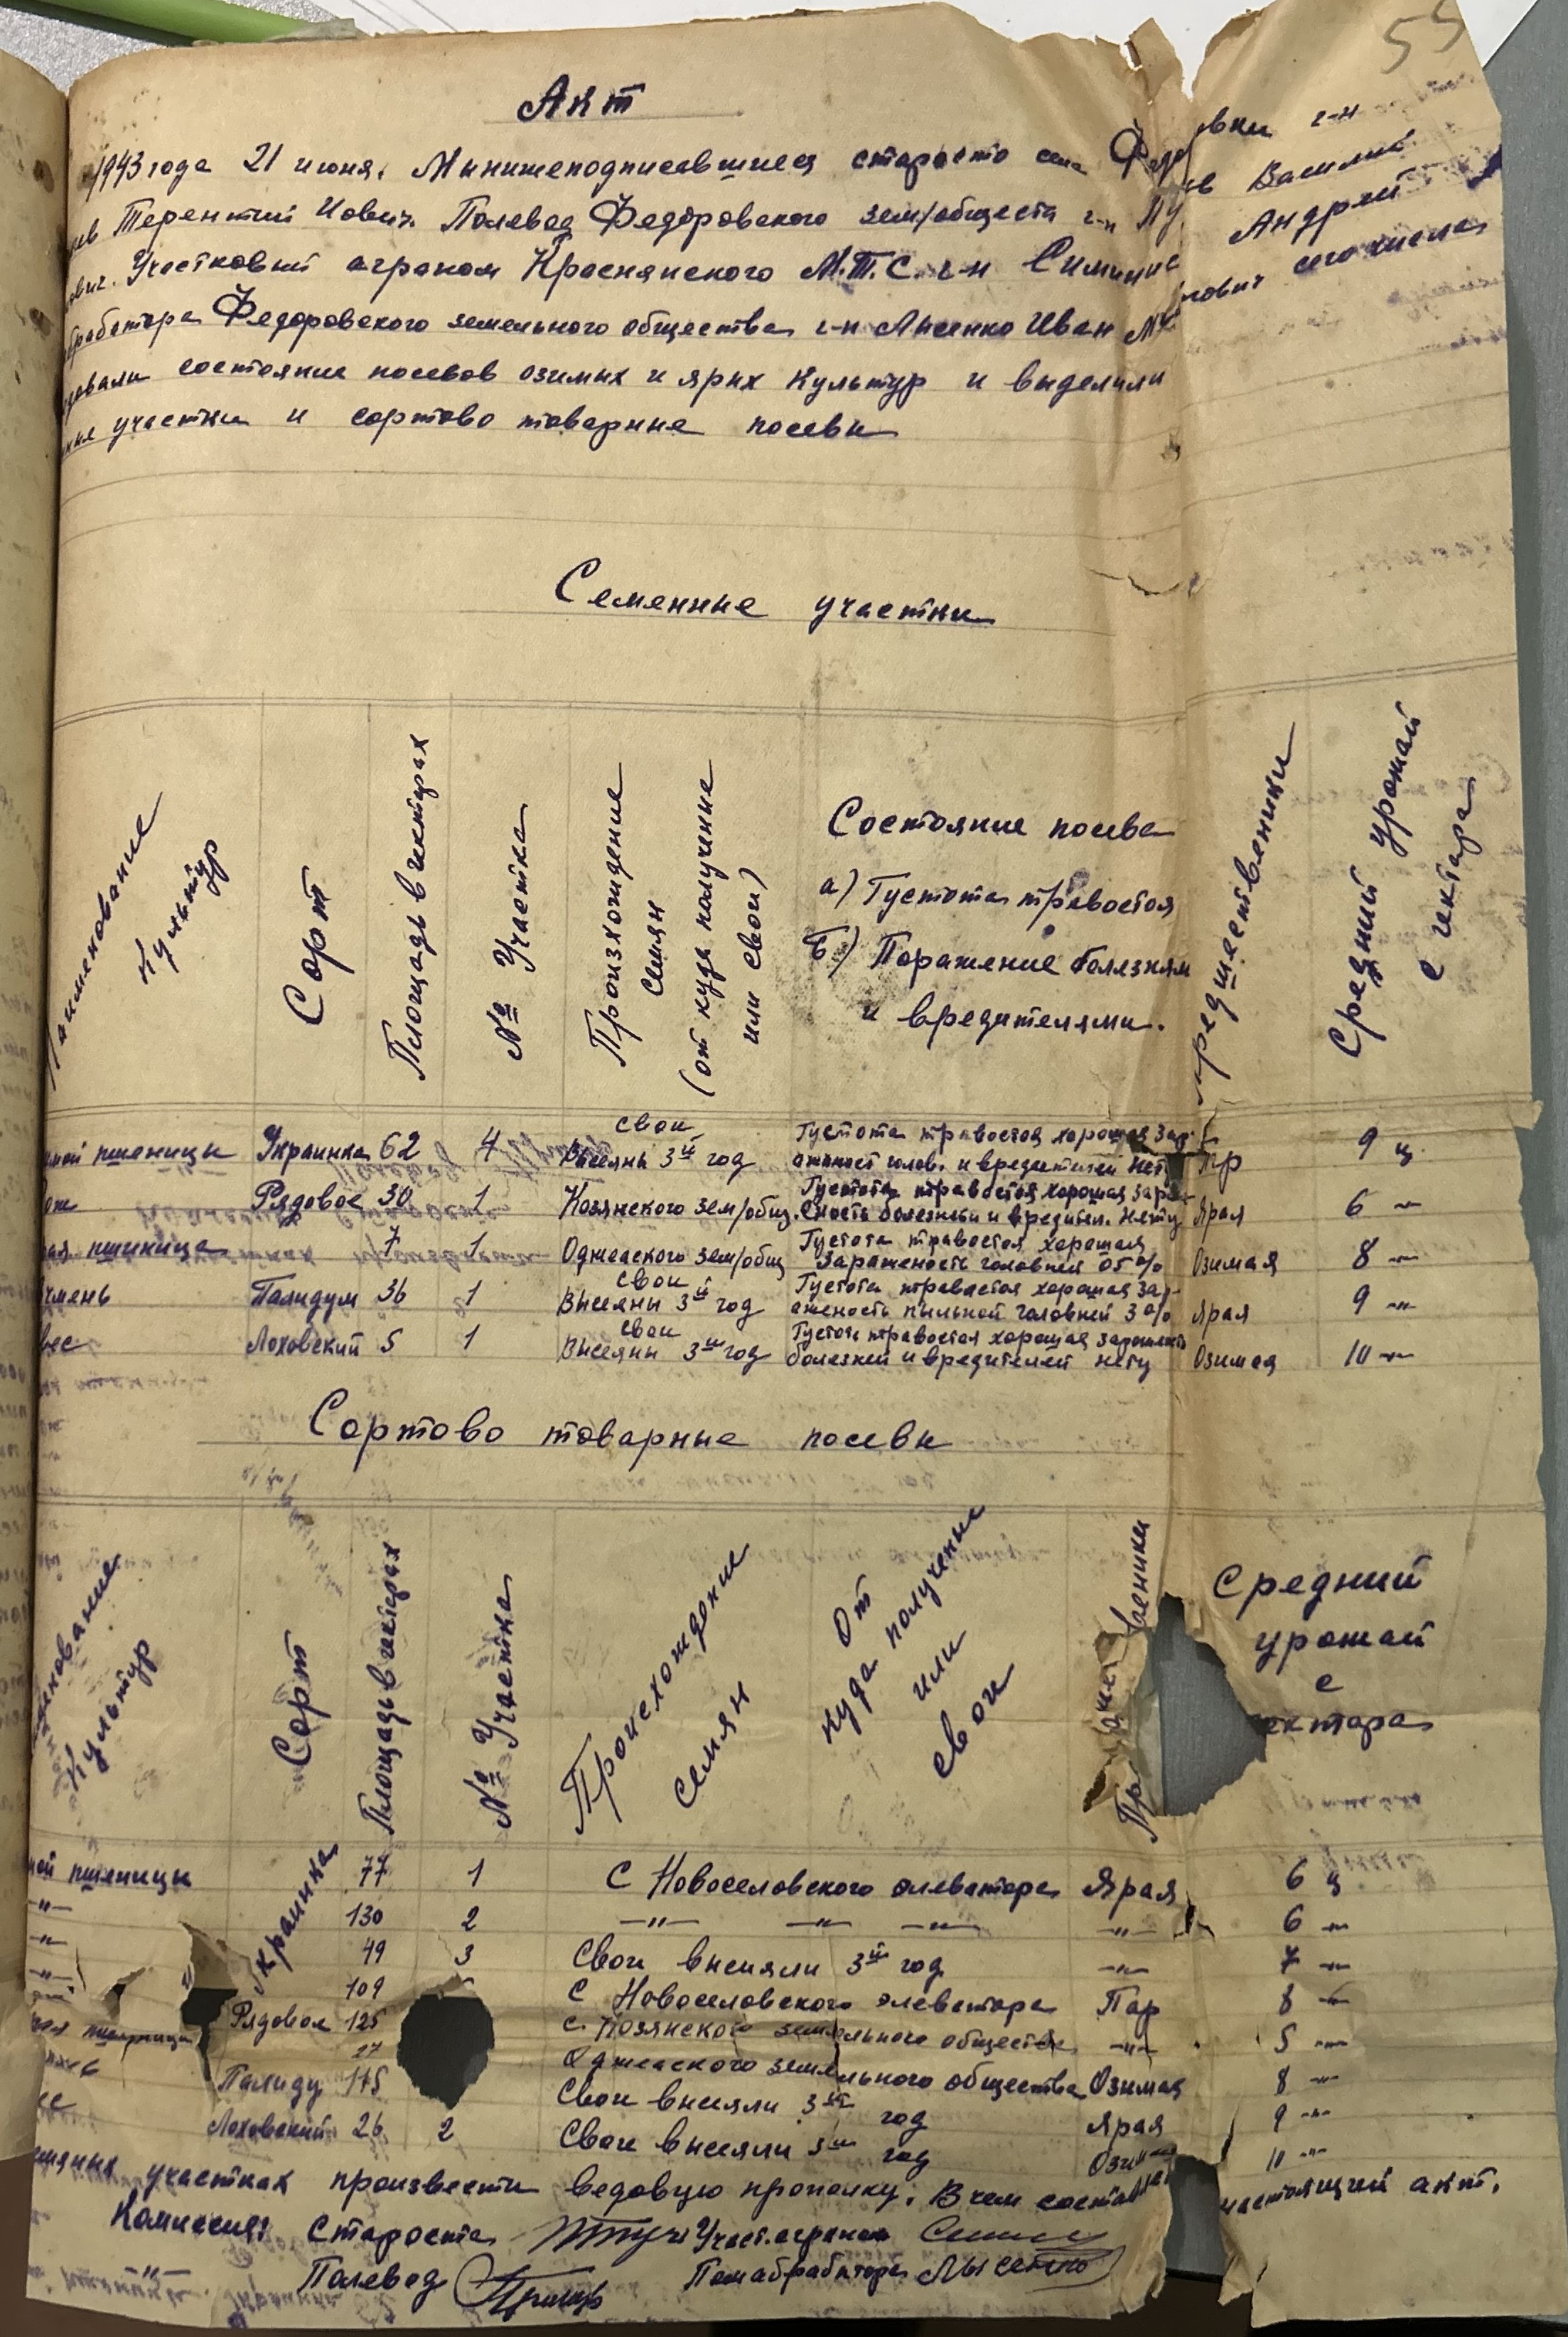 55
Акт
1943 года 21 июня. Мынижеподписавшиеся старосто села Фед вки г-н
ев Терентий Иович. Полевод Федоровского зем/общеста г-н Пу ев Василий
ович. Участковый аграном Краснянского М.Т.С. г-н Симин Андрей
брабатора Федоровского земельного общества г-н Лысенко Иван М нович сего числа
довали состояние посевов озимых и ярых культур и выделили
ные участки и сортово товарные посевы
Семенные участки
Наименование культур
Сорт
Площадь в гектарах
№ Участка
Произхождение семян (от куда полученые или свои)
Состояние посева
а) Густота травостоя
Б) Поражение болезням
и вредителями.
предшественики
Средний урожай с гектара
свои
мой пшеницы Украинка 62 4 Высеяны 3ий год Густота травостоя хорошая зар Пар 9 ц
ажиност голов. и вредителей нет
Рядовое 30 1 Козянского зем/общ. Густота травостоя хорошая зара- Ярая 6 -"-
сность болезньи и вредител. нету
рая пшиница 7 1 Оджеаского зем/общ Густота травостоя хорошая Озимая 8 -"-
Зараженость головней 05%
свои
чмень Палидум 36 1 Высеяны 3ий год Густота травастоя хорошая зар- Ярая 9 -"-
аженость пыльной головней 3%
свои
вес Лоховский 5 1 Высеяны 3ий год Густота травостоя хорошая зараженсть Озимая 10 -"-
болезней и вредителей нету
Сортово товарные посевы
именование культур
Сорт
Площадь в гектарах
№ Участка
Происхождение семян
От куда полученые или свои
Пр веники
Средний
урожай
с
ектара
ой пшеницы Украинка 77 1 С Новоселовского элеватора Ярая 6 ц
-"- 130 2 -"- -"- -"- -"- 6 -"-
-"- 49 3 Свои высияли 3ий год -"- 7 -"-
-"- 109 С Новоселовского элеватора Пар 8 -"-
Рядовое 125 с. Козянского земельного общества -"- 5 -"-
рая пшиница 27 Оджеаского земельного общества Озимая 8 -"-
Палиду 175 Свои высияли 3ий год Ярая 9 -"-
Лоховский 26 2 Свои высияли 3ий год Ози 10 -"-
участках произвести ведовую прополку. В чем состав настоящий акт.
Комиссия: Староста Участ. аграном
-"- Полевод Помабрабатора Лысенко